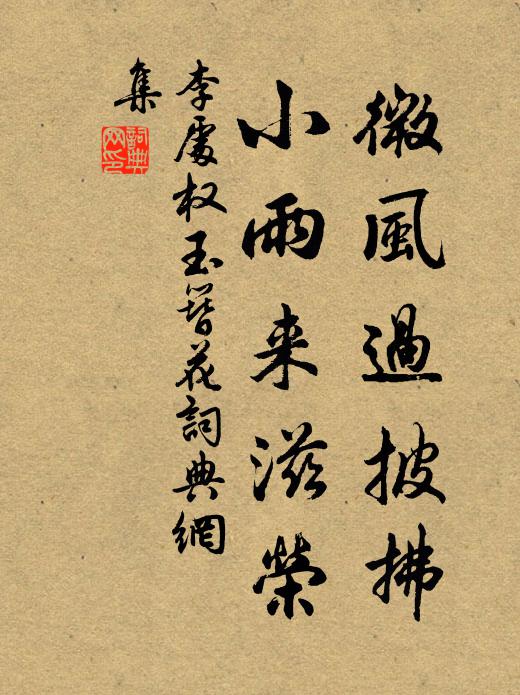 微風過披拂
小雨来滋榮
李處权玉簪花詞典網
集
詞典
网印